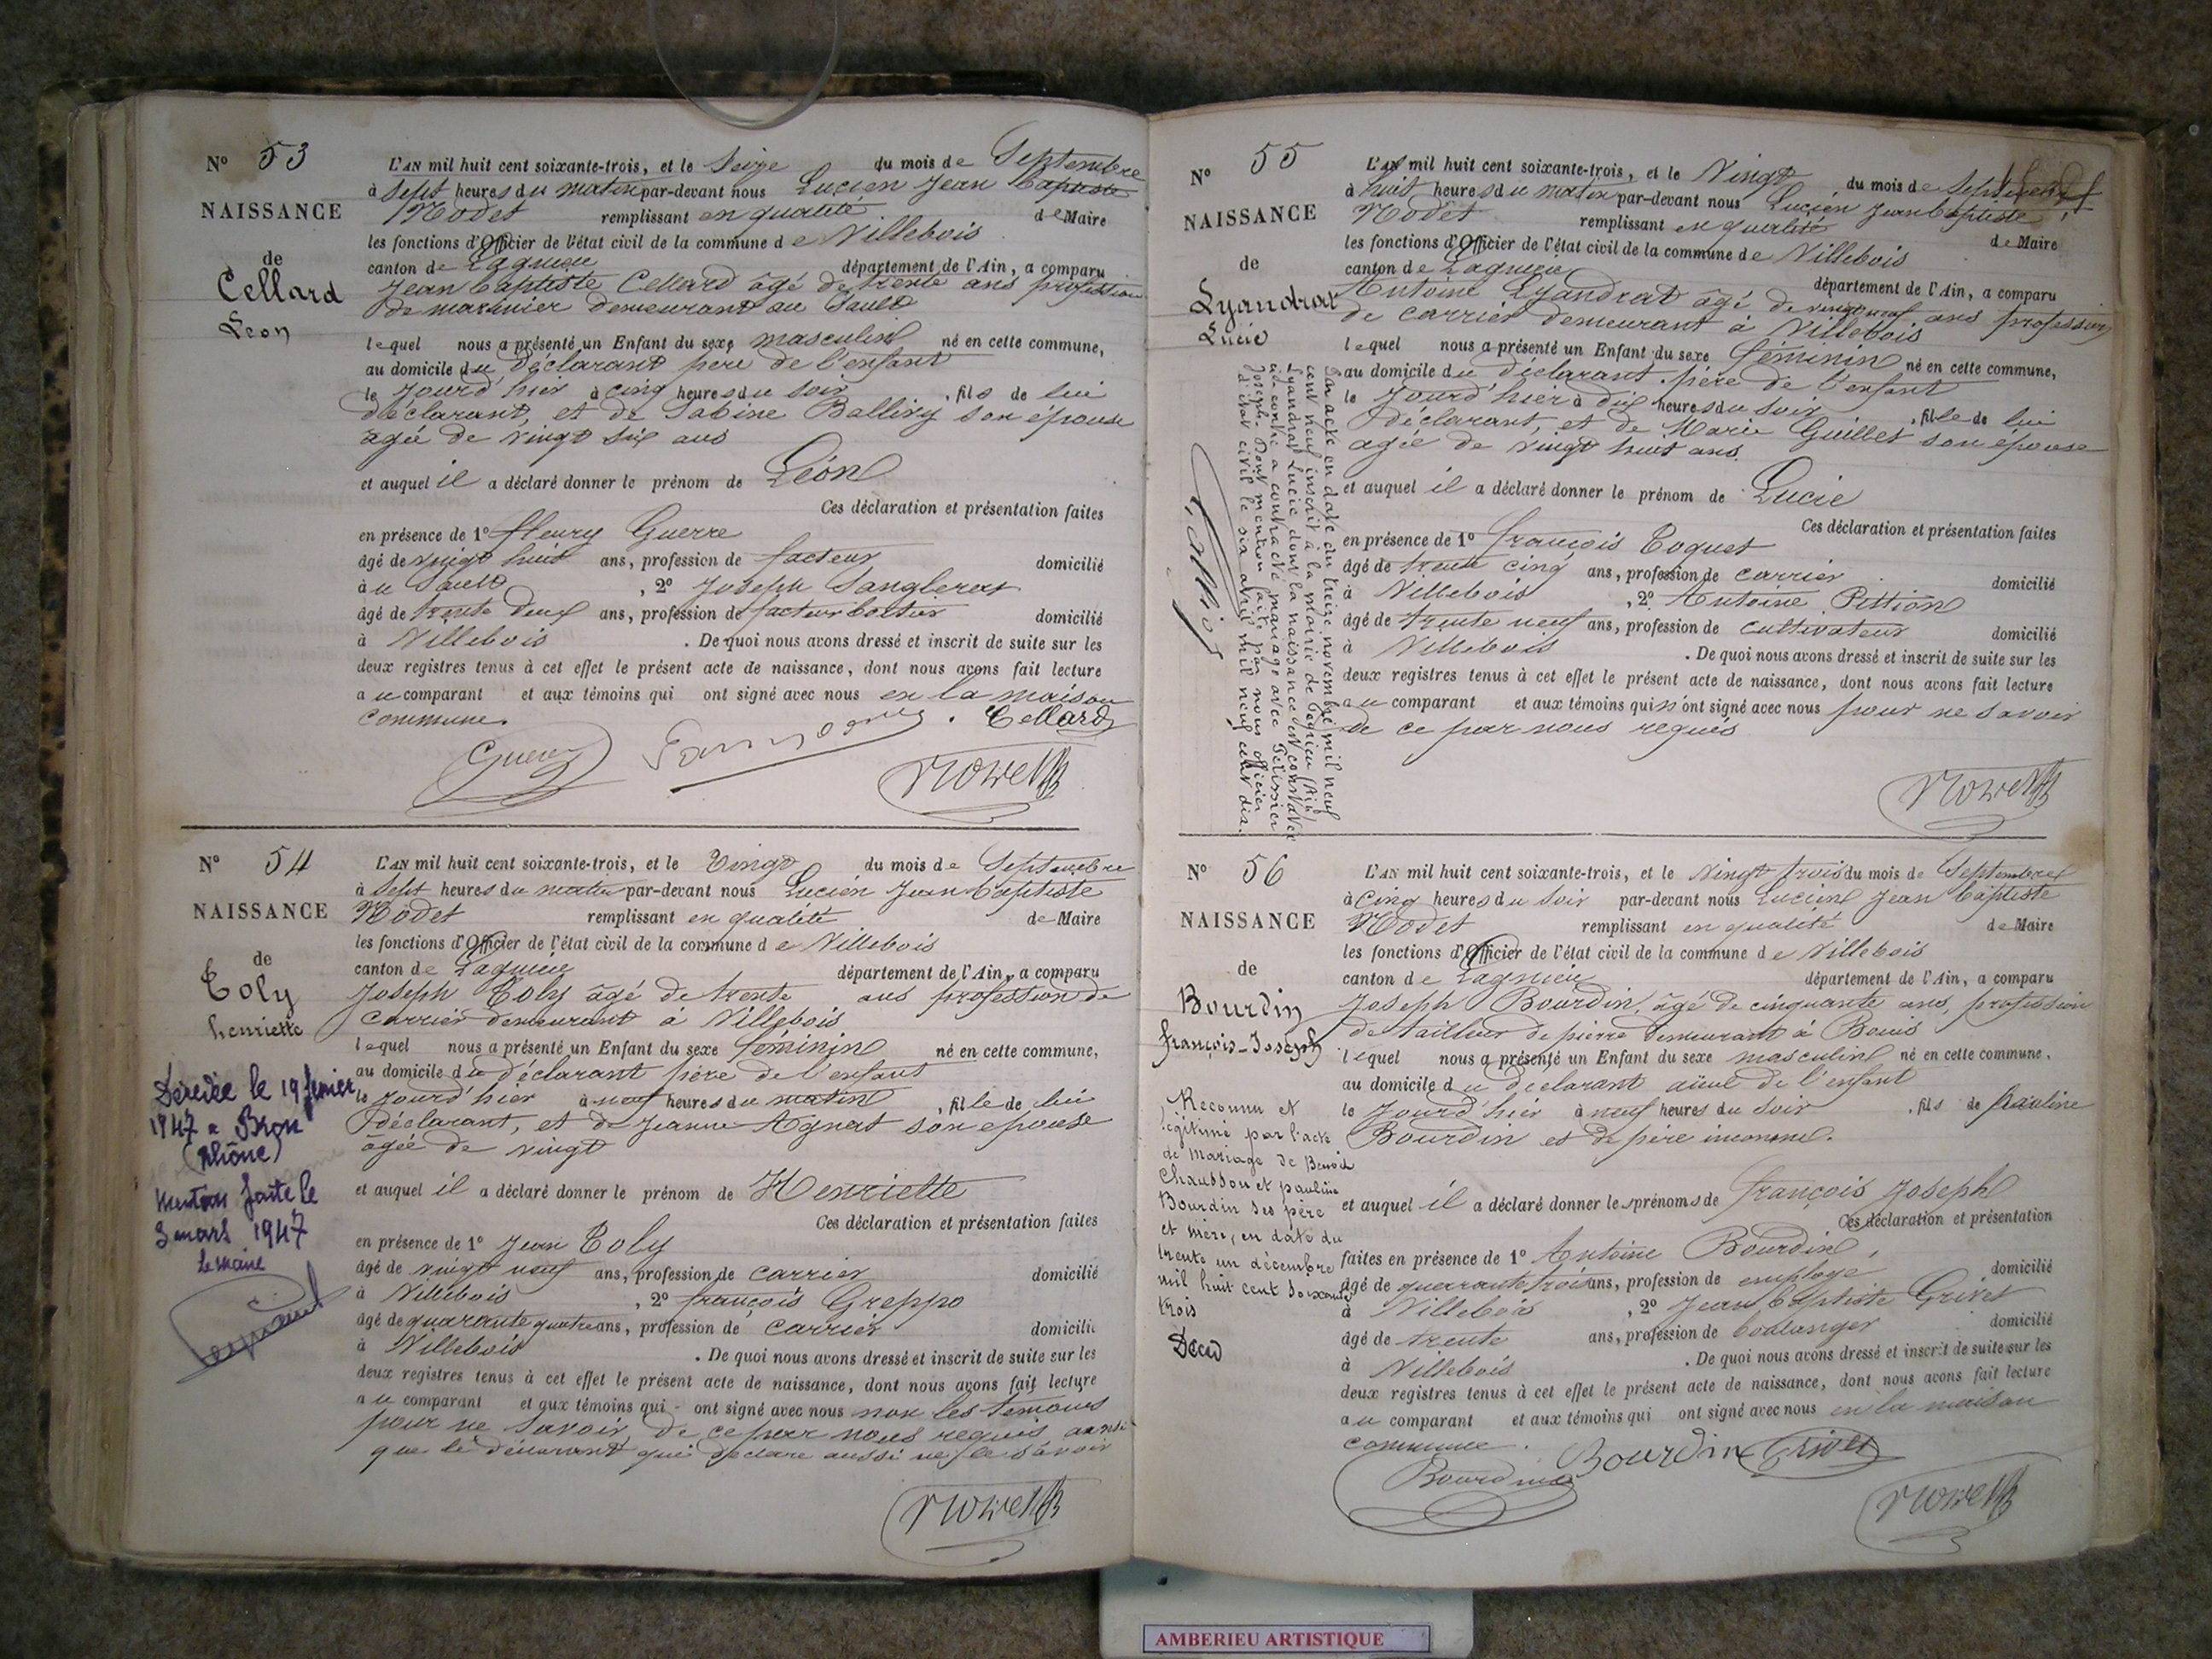 N° 53
NAISSANCE
de
Cellard
Leon
L'AN mil huit cent soixante-trois, et le Seize du mois de Septembre
à Sept heures du matin par-devant nous Lucien Jean Baptiste
Modet remplissant en qualité de Maire
les fonctions d'Officier de l'état civil de la commune de Villebois
canton de Lagnieu département de l'Ain, a comparu
Jean Baptiste Cellard âgé de trente ans profession
de marinier demeurant au Sault
lequel nous a présenté un Enfant du sexe masculin né en cette commune,
au domicile du déclarant père de l'enfant
le jourd'hier à cinq heures du soir, fils de lui
déclarant, et de Sabine Ballivy son épouse
agée de vingt six ans
et auquel il a déclaré donner le prénom de Léon
Ces déclaration et présentation faites
en présence de 1° fleury Guerre
âgé de vingt huit ans, profession de facteur domicilié
au Sault, 2° Joseph Sanglerat
âgé de trente deux ans, profession de facteur boitier domicilié
à Villebois. De quoi nous avons dressé et inscrit de suite sur les
deux registres tenus à cet effet le présent acte de naissance, dont nous avons fait lecture
au comparant et aux témoins qui ont signé avec nous en la maison
commune. Cellard
N° 54
NAISSANCE
de
Coly
henriette
Décédée le 19 fevrier
1947 a Bron
(Rhône)
Mention faite le
3 mars 1947
Le Maire
L'AN mil huit cent soixante-trois, et le Vingt du mois de Septembre
à Sept heures du matin par-devant nous Lucien Jean Baptiste
Modet remplissant en qualité de Maire
les fonctions d'Officier de l'état civil de la commune de Villebois
canton de Lagnieu département de l'Ain, a comparu
Joseph Coly âgé de trente ans profession de
carrier demeurant à Villebois
lequel nous a présenté un Enfant du sexe féminin né en cette commune,
au domicile du déclarant père de l'enfant
le jourd'hier à neuf heures du matin, fille de lui
déclarant, et de Jeanne Agnat son epouse
âgée de vingt
et auquel il a déclaré donner le prénom de Henriette
Ces déclaration et présentation faites
en présence de 1° Jean Coly
âgé de vingt neuf ans, profession de carrier domicilié
à Villebois, 2° françois Greppo
âgé de quarante quatre ans, profession de carrier domicilié
à Villebois. De quoi nous avons dressé et inscrit de suite sur les
deux registres tenus à cet effet le présent acte de naissance, dont nous avons fait lecture
au comparant et aux témoins qui ont signé avec nous non les temoins
pour ne savoir, de ce par nous requis ainsi
que le déclarant qui declare aussi ne le savoir
N° 55
NAISSANCE
de
Lyandrat
Lucie
Par acte en date du treize novembre mil neuf
cent neuf inscrit à la mairie de
Lyandrat Lucie dont la naissance est constatée
ci-contre a contracté mariage avec Pélissier
Joseph. Dont mention faite par nous officier
d'état civil le six avril mil neuf cent dix.
L'AN mil huit cent soixante-trois, et le Vingt du mois de Septembre
à huit heures du matin par-devant nous Lucien Jean Baptiste
Modet remplissant en qualité de Maire
les fonctions d'Officier de l'état civil de la commune de Villebois
canton de Lagnieu département de l'Ain, a comparu
Antoine Lyandrat âgé de vingt neuf ans profession
de carrier demeurant à Villebois
lequel nous a présenté un Enfant du sexe féminin né en cette commune,
au domicile du déclarant père de l'enfant
le jourd'hier à dix heures du soir, fille de lui
déclarant, et de Marie Guillet son épouse
agée de vingt huit ans.
et auquel il a déclaré donner le prénom de Lucie
Ces déclaration et présentation faites
en présence de 1° françois Coquet
âgé de trente cinq ans, profession de carrier domicilié
à Villebois, 2° Antoine Pittion
âgé de trente neuf ans, profession de cultivateur domicilié
à Villebois. De quoi nous avons dressé et inscrit de suite sur les
deux registres tenus à cet effet le présent acte de naissance, dont nous avons fait lecture
au comparant et aux témoins qui n'ont signé avec nous pour ne savoir
de ce par nous requis
N° 56
NAISSANCE
de
Bourdin
françois-Joseph
Reconnu et
légitimé par l'acte
de Mariage de Benoit
Chausson et pauline
Bourdin ses père
et mère, en date du
trente un décembre
mil huit cent soixante
trois
L'AN mil huit cent soixante-trois, et le Vingt trois du mois de Septembre
à Cinq heures du soir par-devant nous Lucien Jean Baptiste
Modet remplissant en qualité de Maire
les fonctions d'Officier de l'état civil de la commune de Villebois
canton de Lagnieu département de l'Ain, a comparu
Joseph Bourdin, âgé de cinquante ans, profession
de tailleur de pierre demeurant à Bouis
lequel nous a présenté un Enfant du sexe masculin né en cette commune.
au domicile du déclarant aïeul de l'enfant
le jourd'hier à neuf heures du soir, fils de pauline
Bourdin et de père inconnu.
et auquel il a déclaré donner les prénoms de françois Joseph
Ces déclaration et présentation
faites en présence de 1° Antoine Bourdin,
âgé de quarante trois ans, profession de employé domicilié
à Villebois, 2° Jean Baptiste Grivet
âgé de trente ans, profession de boulanger domicilié
à Villebois. De quoi nous avons dressé et inscrit de suite sur les
deux registres tenus à cet effet le présent acte de naissance, dont nous avons fait lecture
au comparant et aux témoins qui ont signé avec nous en la maison
commune. Bourdin Grivet
Bourdin
AMBERIEU ARTISTIQUE